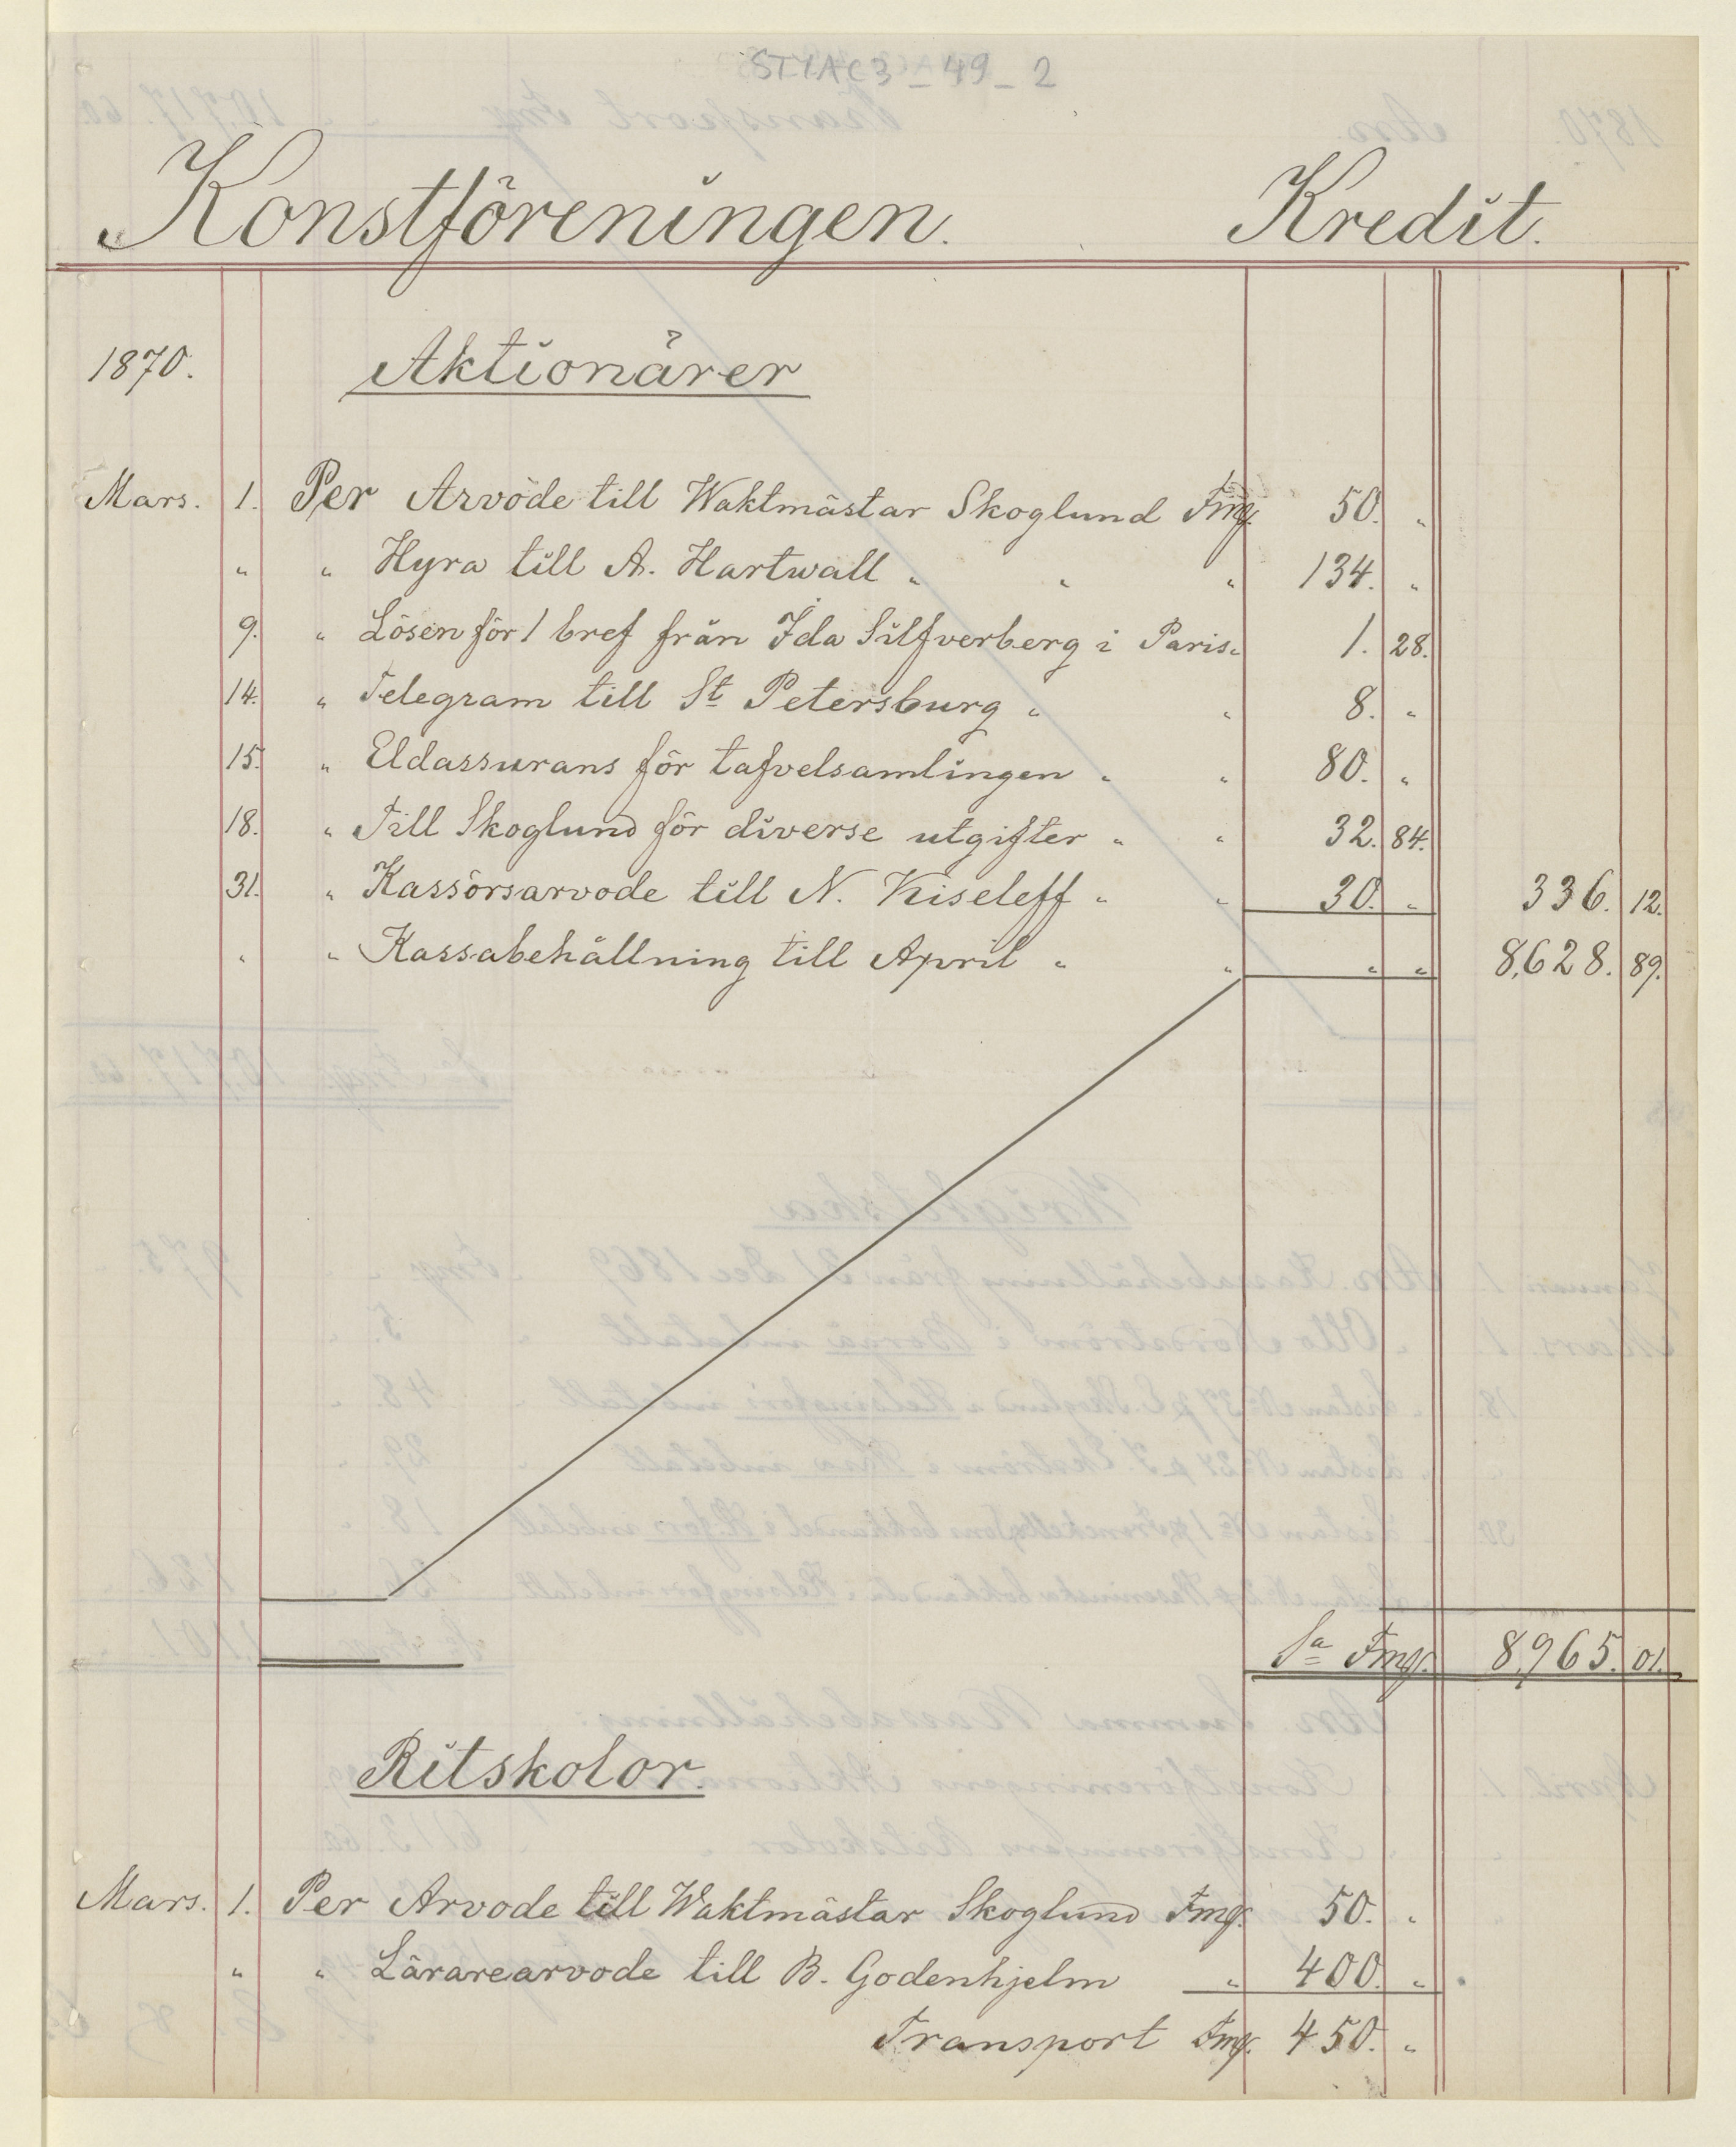 STYAC3_49_2
Konstföreningen. Kredit.
1870. Aktionärer
Mars. 1. Per Arvode till Waktmästar Skoglund Fmg. 50. "
" " Hyra till A. Hartwall " " " 134. "
9. " Lösen för 1 bref från Ida Silfverberg i Paris " 1. 28.
14. " Telegram till St Petersburg " " 8. "
15. " Eldassurans för tafvelsamlingen " " 80. "
18. " Till Skoglund för diverse utgifter " " 32. 84.
31. " Kassörsarvode till N. Kiseleff " " 30. " 336. 12.
" " Kassabehållning till April " " " " 8,628. 89.
Sa Fmg. 8,965. 01.
Ritskolor.
Mars. 1. Per Arvode till Waktmästar Skoglund Fmg. 50. "
" " Lärarearvode till B. Godenhjelm " 400. "
Transport Fmg. 450. "